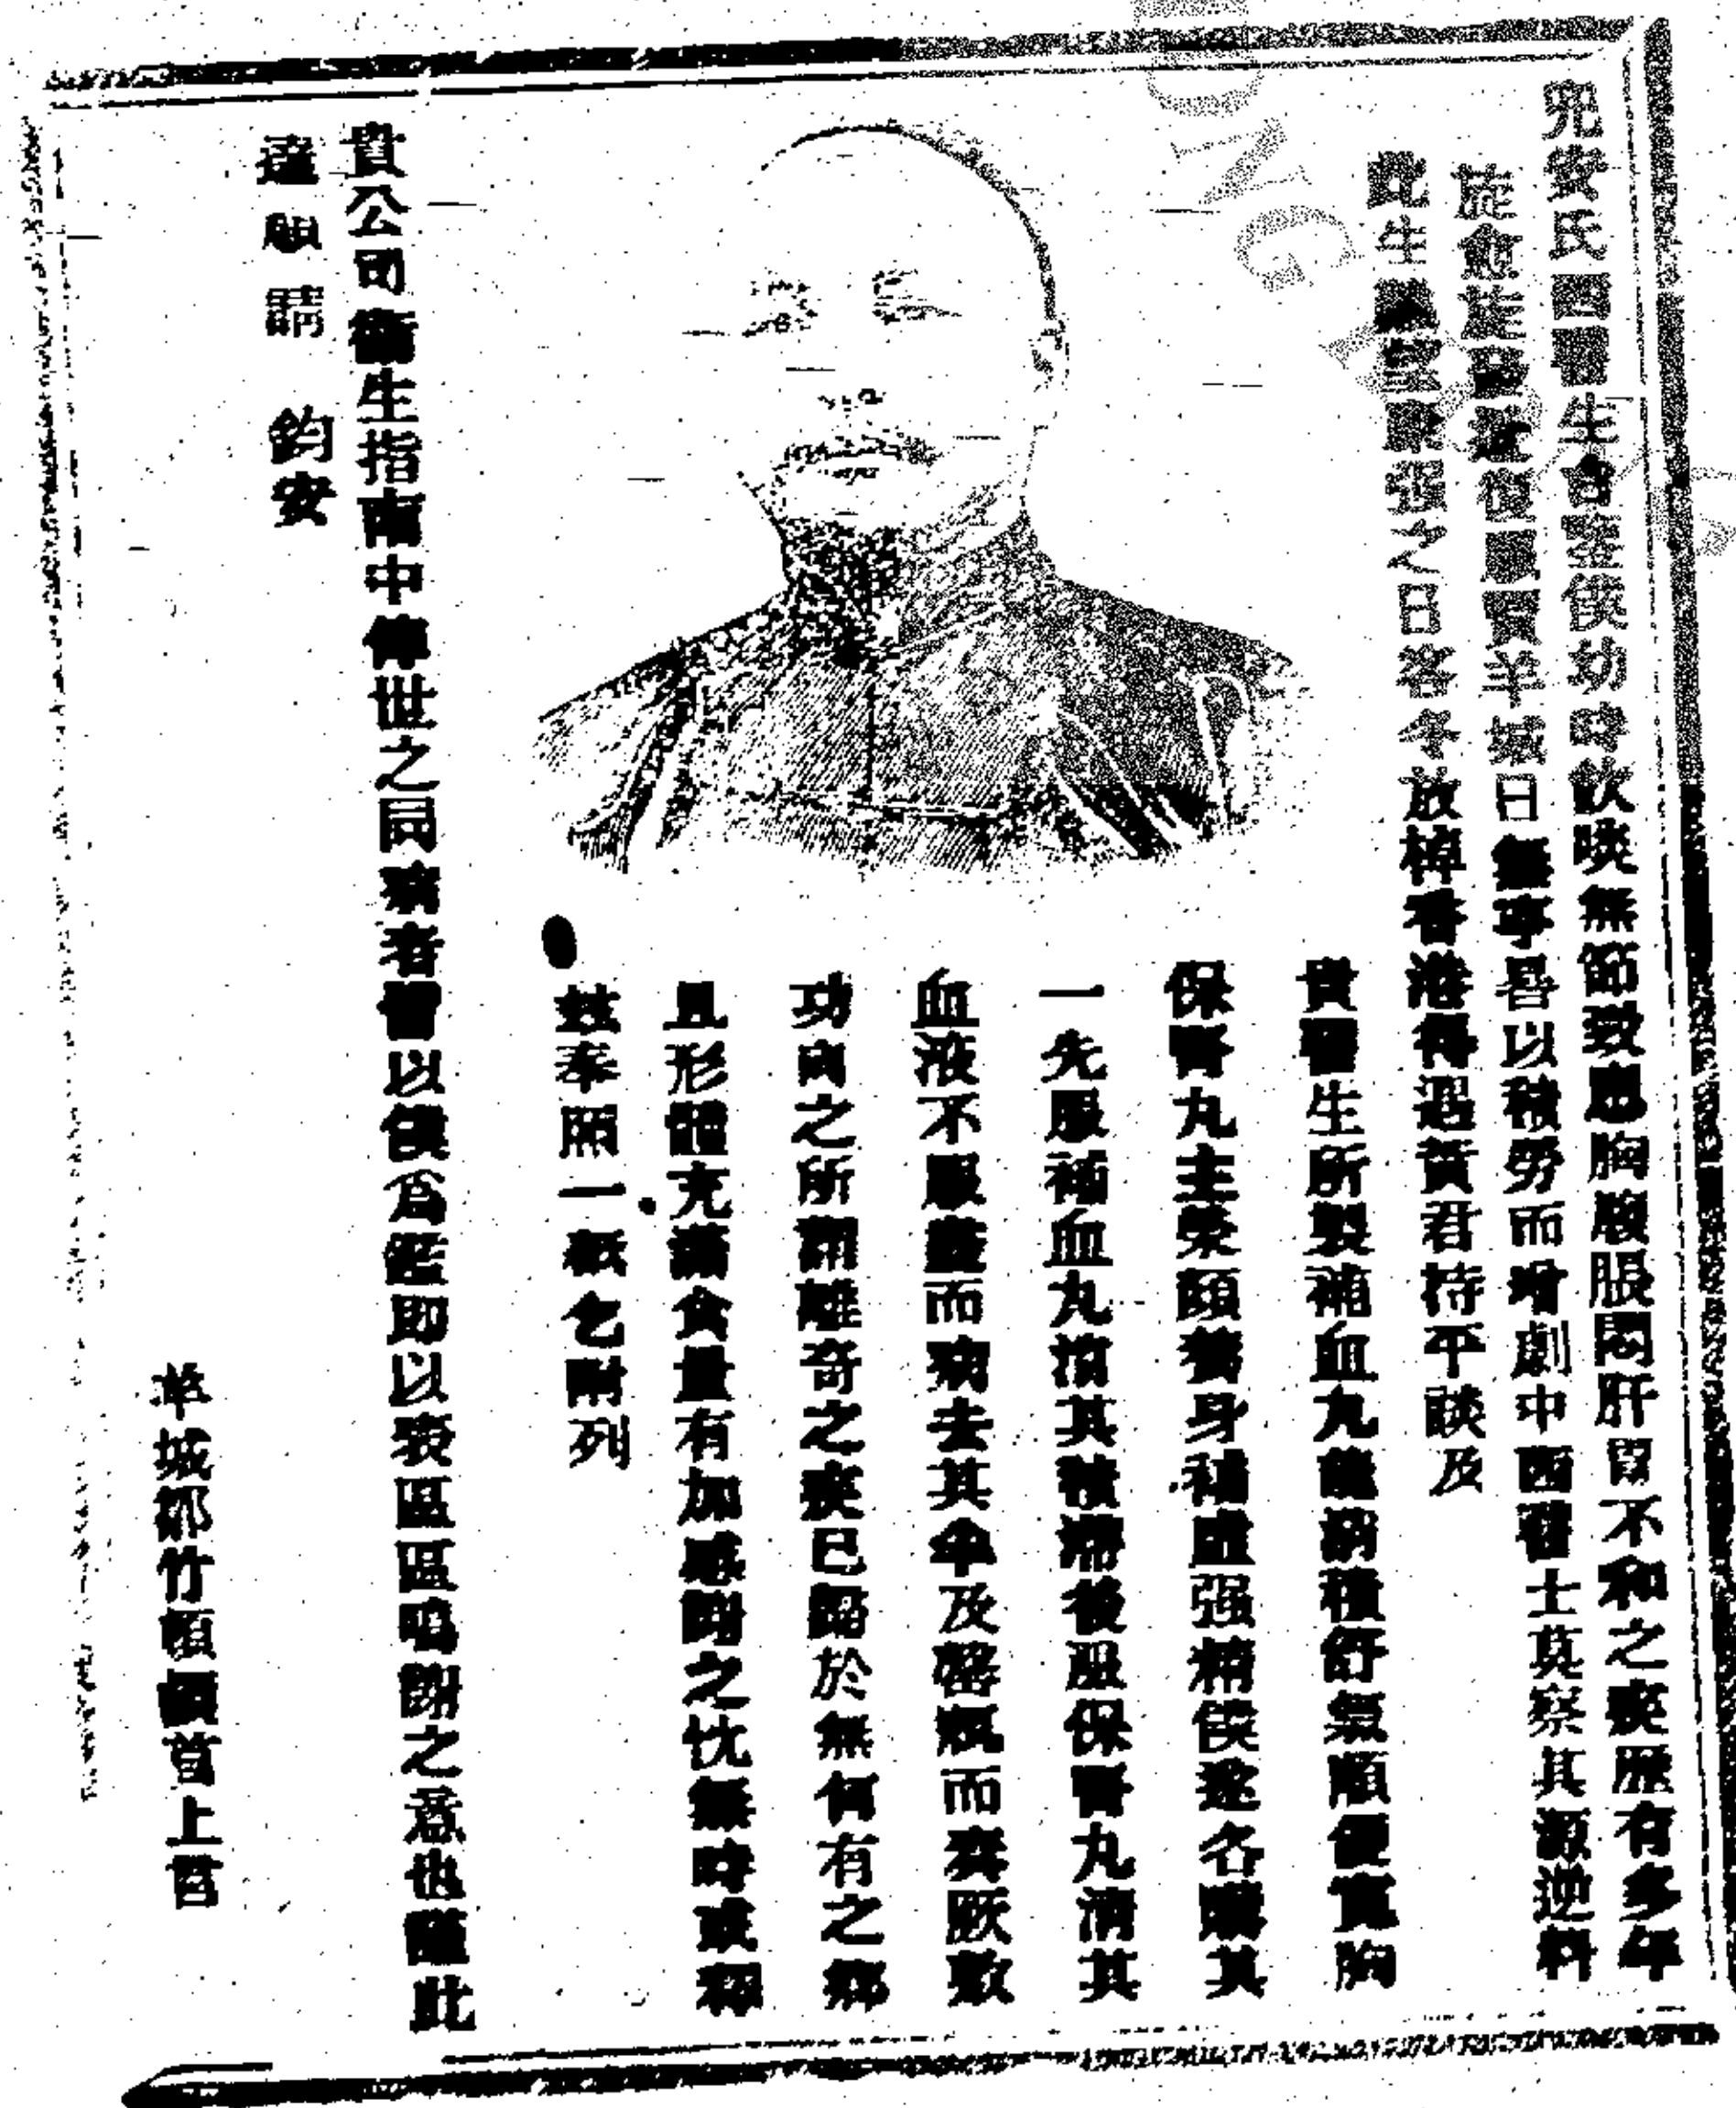 兜安氏西醫生台鑒僕幼時飲啖無節致患胸膈脹悶肝胃不和之疾歷有多年
旋愈旋發近復貿羊城日無寧晷以積勞而增劇中西醫士莫察其源逆料
此生無望壯强之日客冬放棹香港得遇黃君持平談及
貴醫生所製補血丸能消積舒氣順便寬胸
保腎丸主榮顏養身補血强精僕遂各購其
一先服補血丸清其積滯後服保腎丸清其
血液不服盡而病去其半及罄瓶而奏厥效
功向之所謂離奇之疾已歸於無何有之鄉
且形體充滿食量有加感謝之忱無時或釋
茲奉照一紙乞附列
貴公司衛生指南中俾世之同病者當以僕為鑑即以表區區鳴謝之意也謹此
達 請 鈞安
羊城鄒竹頓首上言
ING